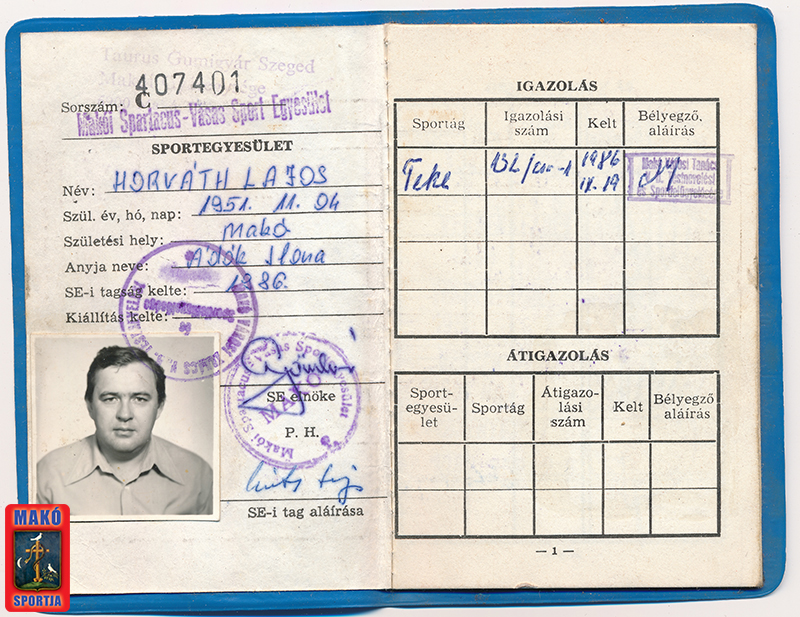 Taurus Gumigyár Szeged
407401
Sorszám: C
Makói Spartacus-Vasas Sport Egyesület
SPORTEGYESÜLET
Név: HORVÁTH LAJOS
Szül. év, hó, nap: 1951. 11. 04
Születési hely: Makó
Anyja neve: Ádók Ilona
SE-i tagság kelte: 1986.
Kiállítás kelte:
SE elnöke
P. H.
Makói Spartacus-Vasas Sport Egyesület
MAKÓ
SE-i tag aláírása
MAKÓ
SPORTJA
IGAZOLÁS
Sportág
Igazolási szám
Kelt
Bélyegző, aláírás
Teke
1986
IX. 19
Makó Városi Tanács
ÁTIGAZOLÁS
Sport-
egyesü-
let
Sportág
Átigazo-
lási
szám
Kelt
Bélyegző
aláírás
— 1 —